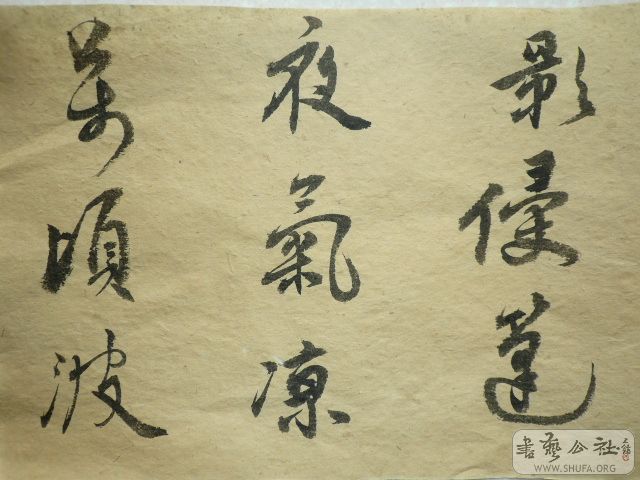 影侵篷
夜氣凉
萬頃波
書藝公社
WWW.SHUFA.ORG